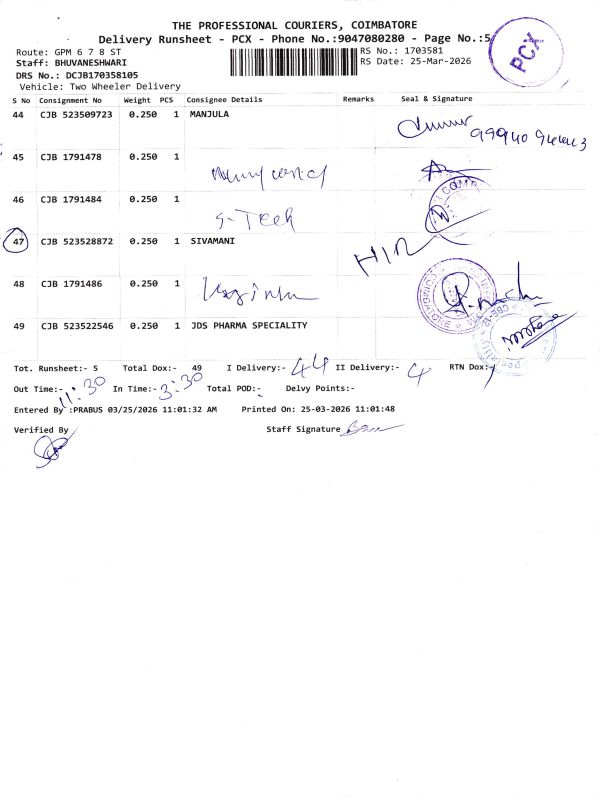 THE PROFESSIONAL COURIERS, COIMBATORE
Delivery Runsheet - PCX - Phone No.:9047080280 - Page No.:5
PCX
Route: GPM 6 7 8 ST
RS No.: 1703581
Staff: BHUVANESHWARI
RS Date: 25-Mar-2026
DRS No.: DCJB170358105
Vehicle: Two Wheeler Delivery
S No Consignment No Weight PCS Consignee Details Remarks Seal & Signature
44 CJB 523509723 0.250 1 MANJULA
45 CJB 1791478 0.250 1
46 CJB 1791484 0.250 1
S-Tech
47 CJB 523528872 0.250 1 SIVAMANI
48 CJB 1791486 0.250 1
49 CJB 523522546 0.250 1 JDS PHARMA SPECIALITY
Tot. Runsheet:- 5 Total Dox:- 49 I Delivery:- 44 II Delivery:- 4 RTN Dox:- 1
Out Time:- 11:30 In Time:- 3:30 Total POD:- Delvy Points:-
Entered By :PRABUS 03/25/2026 11:01:32 AM Printed On: 25-03-2026 11:01:48
Verified By Staff Signature